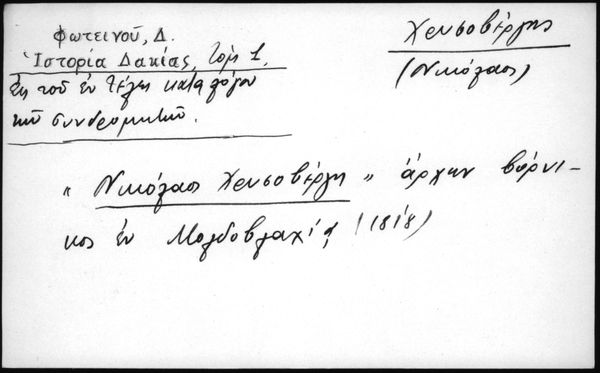 Φωτεινοῦ, Δ.
Ἱστορία Δακίας, τομ. 1,
Ἐκ τοῦ ἐν τέλει καταλόγου
τῶν συνδρομητῶν.
Χρυσοβέργης
(Νικόλαος)
"Νικόλαος Χρυσοβέργης" ἄρχων βόρνι-
κος ἐν Μολδοβλαχίᾳ (1818)